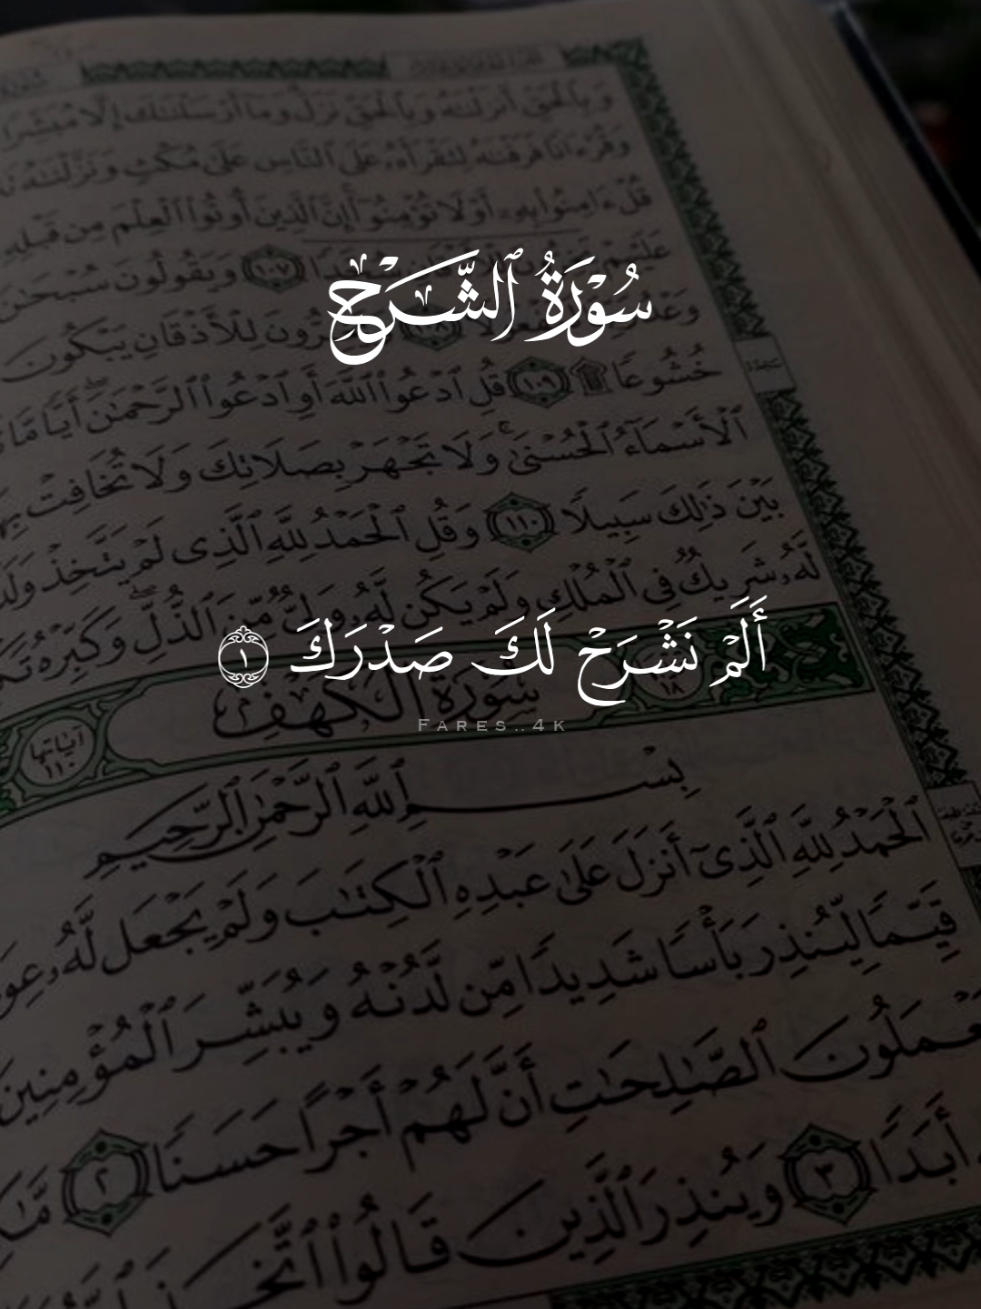 وَبِالْحَقِّ أَنزَلْنَٰهُ وَبِالْحَقِّ نَزَلَ وَمَا أَرْسَلْنَٰكَ إِلَّا مُبَشِّرًا
وَقُرْءَانًا فَرَقْنَٰهُ لِتَقْرَأَهُۥ عَلَى النَّاسِ عَلَىٰ مُكْثٍ وَنَزَّلْنَٰهُ
قُلْ ءَامِنُوا۟ بِهِۦٓ أَوْ لَا تُؤْمِنُوٓا۟ إِنَّ الَّذِينَ أُوتُوا۟ الْعِلْمَ مِن قَبْلِهِ
عَلَيْهِمْ ١٠٧ وَيَقُولُونَ سُبْحَٰنَ
سُوْرَةُ ٱلشَّرَحِ
لِلْأَذْقَانِ يَبْكُونَ
خُشُوعًا ۩ ١٠٩ قُلِ ادْعُوا۟ اللَّهَ أَوِ ادْعُوا۟ الرَّحْمَٰنَ أَيًّا مَّا
الْأَسْمَآءُ الْحُسْنَىٰ وَلَا تَجْهَرْ بِصَلَاتِكَ وَلَا تُخَافِتْ
بَيْنَ ذَٰلِكَ سَبِيلًا ١١٠ وَقُلِ الْحَمْدُ لِلَّهِ الَّذِى لَمْ يَتَّخِذْ
لَّهُۥ شَرِيكٌ فِى الْمُلْكِ وَلَمْ يَكُن لَّهُۥ وَلِىٌّ مِّنَ الذُّلِّ وَكَبِّرْهُ
أَلَمْ نَشْرَحْ لَكَ صَدْرَكَ ١
سُورَةُ الْكَهْفِ ١٨
FARES..4K
آيَاتُهَا ١١٠
بِسْمِ اللَّهِ الرَّحْمَٰنِ الرَّحِيمِ
الْحَمْدُ لِلَّهِ الَّذِىٓ أَنزَلَ عَلَىٰ عَبْدِهِ الْكِتَٰبَ وَلَمْ يَجْعَل لَّهُۥ
قَيِّمًا لِّيُنذِرَ بَأْسًا شَدِيدًا مِّن لَّدُنْهُ وَيُبَشِّرَ الْمُؤْمِنِينَ
الصَّٰلِحَٰتِ أَنَّ لَهُمْ أَجْرًا حَسَنًا ٢
أَبَدًا ٣ وَيُنذِرَ الَّذِينَ قَالُوا۟ اتَّخَذَ